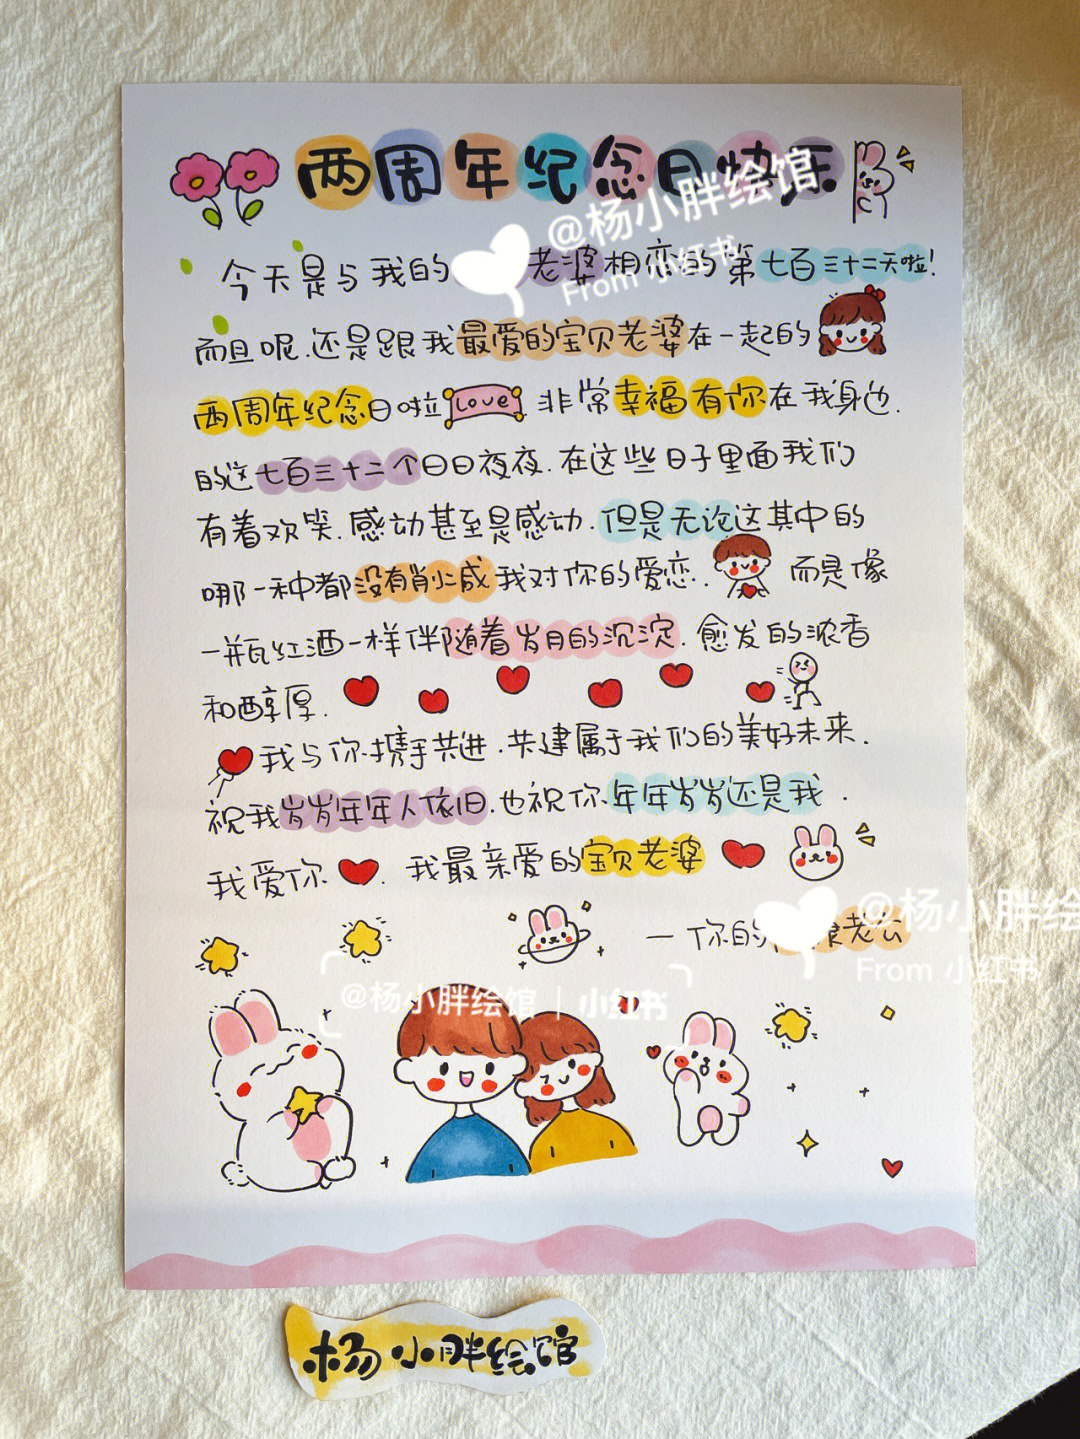 两周年纪念日快乐
今天是与我的 老婆相恋的第七百三十二天啦!
而且呢.还是跟我最爱的宝贝老婆在一起的
两周年纪念日啦 Love 非常幸福有你在我身边.
的这七百三十二个日日夜夜.在这些日子里面我们
有着欢笑.感动甚至是感动.但是无论这其中的
哪一种都没有削减我对你的爱恋. 而是像
一瓶红酒一样伴随着岁月的沉淀.愈发的浓香
和醇厚.
我与你携手共进.共建属于我们的美好未来.
祝我岁岁年年人依旧.也祝你年年岁岁还是我.
我爱你 . 我最亲爱的宝贝老婆
一你的 老公
杨小胖绘馆
@杨小胖绘馆
From 小红书
@杨小胖绘馆 | 小红书
@杨小胖绘
From 小红书